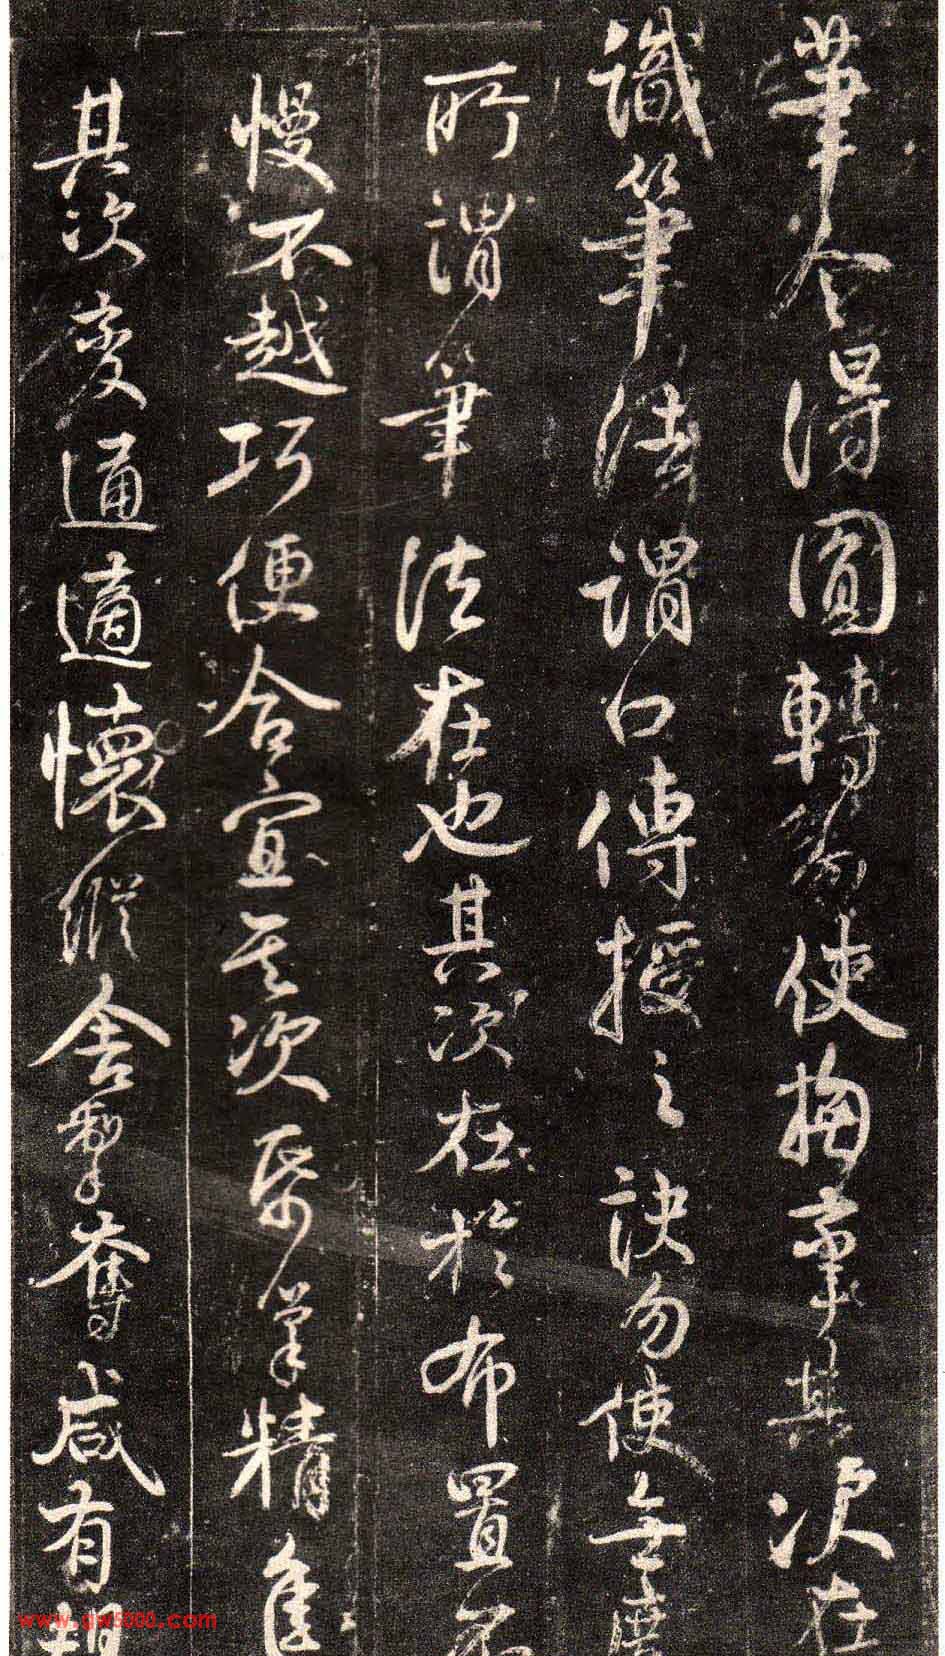 筆令得圓轉勿使拘攣其次在
識筆法謂口傳授之訣勿使無度
所謂筆法在也其次在於布置不
慢不越巧便合宜其次紙筆精佳
其次變通適懷縱舍掣奪咸有規
www.gw5000.com